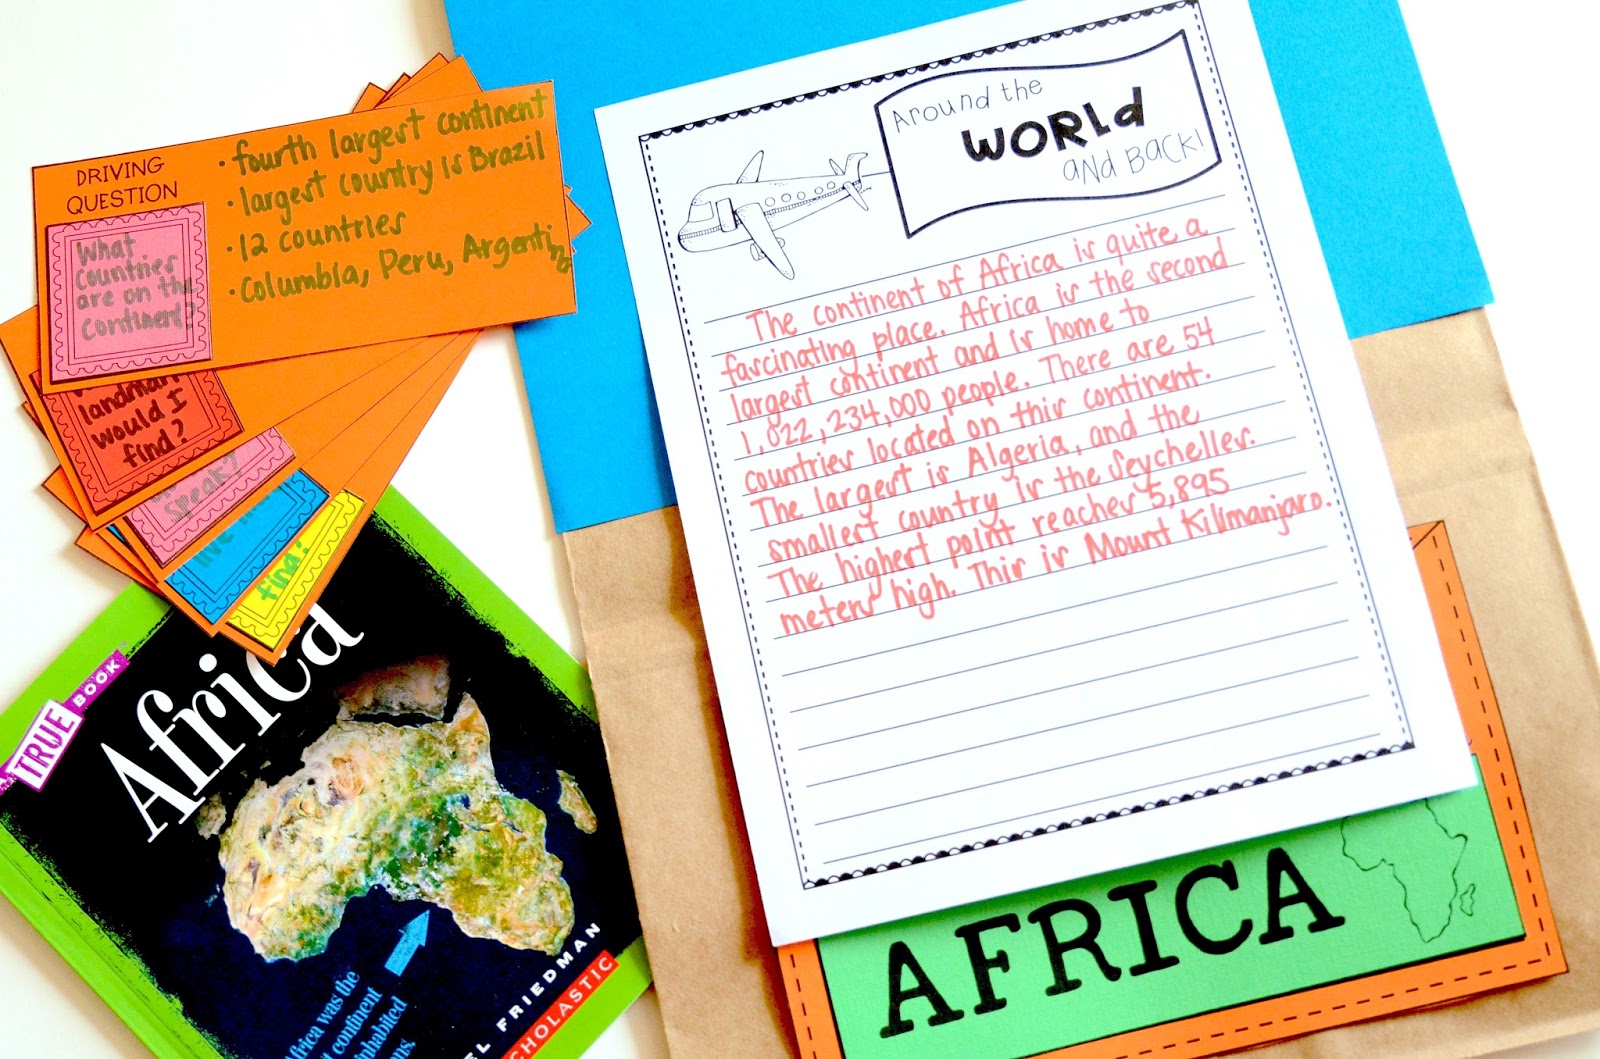 DRIVING
QUESTION
What
countries
are on the
continent?
• fourth largest continent
• largest country is Brazil
• 12 countries
• Columbia, Peru, Argentina
landmark
would I
find?
speak?
live
find?
Around the
WORLD
and BACK!
The continent of Africa is quite a
fascinating place. Africa is the second
largest continent and is home to
1,022,234,000 people. There are 54
countries located on this continent.
The largest is Algeria, and the
smallest country is the Seychelles.
The highest point reaches 5,895
meters high. This is Mount Kilimanjaro.
A TRUE BOOK
Africa
Africa was the
continent
inhabited
FRIEDMAN
SCHOLASTIC
AFRICA